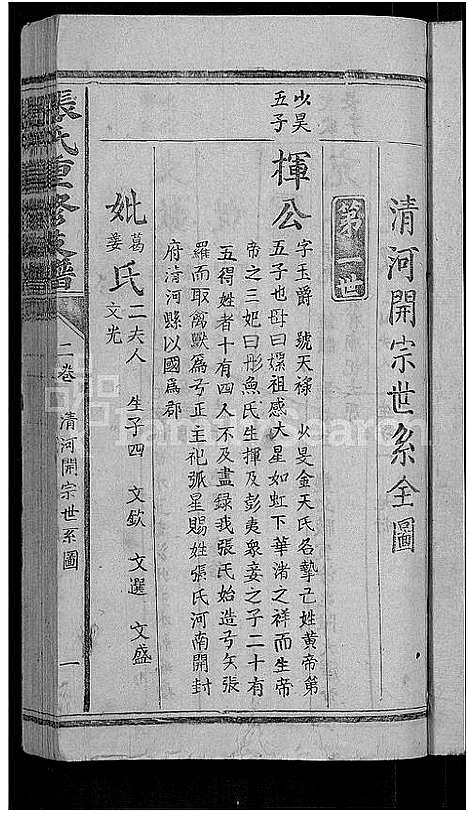 清河開宗世系全圖
第一世
少昊
五子
揮公
字玉爵 號天祿 少旻金天氏名摯己姓黃帝第
五子也母曰嫘祖感大星如虹下華渚之祥而生帝
帝之三妃曰彤魚氏生揮及彭夷衆妾之子二十有
五得姓者十有四人不及盡録我張氏始造弓矢張
羅而取禽獸爲弓正主祀弧星賜姓張氏河南開封
府清河縣以國爲郡
妣葛姜氏二夫人 生子四 文欽 文選 文盛
文光
張氏重修支譜
二卷 清河開宗世系圖 一
FamilySearch